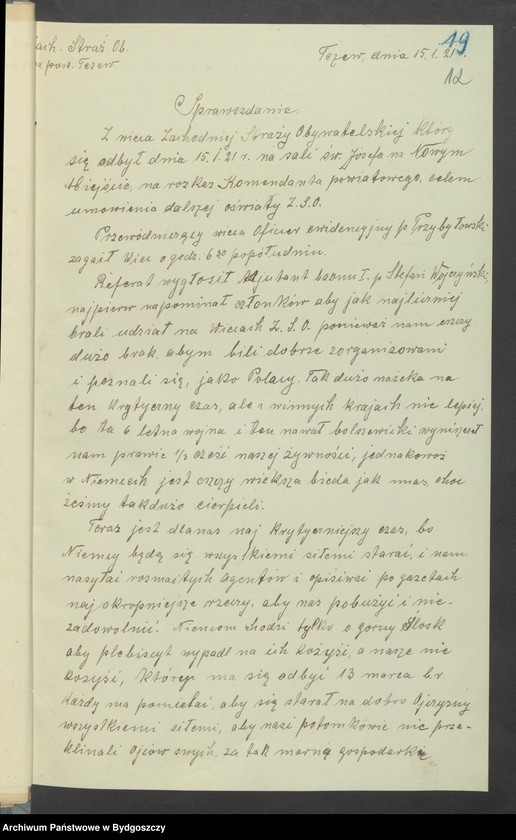 Zach. Straż Ob.
na pow. Tczew
49
Tczew, dnia 15.1.21
12
Sprawozdanie.
Z wieca Zachodniej Straży Obywatelskiej który
się odbył dnia 15.1.21 r. na sali św. Józefa na Nowym
Miejście, na rozkaz Komendanta powiatowego, celem
umowienia dalszej oświaty Z.S.O.
Przewódniczący wieca Oficer ewidencyjny p Przybyłowski
zagaił Wiec o godz. 6 20 popołudniu.
Referat wygłosił Adjutant baonu I. p Stefan Wojczyński,
najpierw napominał członków aby jak najliczniej
brali udział na Wiecach Z.S.O. ponieważ nam eszczy
dużo brak, abym bili dobrze zorganizowani
i poznali się, jako Polacy. Tak dużo nażeka na
ten krytyczny czas, ale i winnych krajach nie lepiej.
bo ta 6 letna wojna i ten nawał bolszewicki wyniszczł
nam prawie 1/3 cześć naszej żywności, jednakowoż
w Niemcech jest eszczy wieksza bieda jak unas, choc
żeśmy takdużo cierpieli.
Teraz jest dlanas naj krytyczniejszy czas, bo
Niemcy będą się wszystkiemi siłemi starać, i nam
nasyłai rozmaitych Agentów i opisiwać po gazetach
naj okropniejsze rzeczy, aby nas pobużyć i nie-
zadowolnić. Niemcom chodzi tylko o gorny Ślosk
aby plebiscyt wypadł na ich kożyśi, a nasze nie
kożyśi, który ma się odbyi 13 marca b.r.
Każdy ma pomietać, aby się starał na dobro Ojczyzny
wszystkiemi siłemi, aby nasi potomkówie nie prze-
klinali ojców swych, za tak marną gospodarkię
Archiwum Państwowe w Bydgoszczy